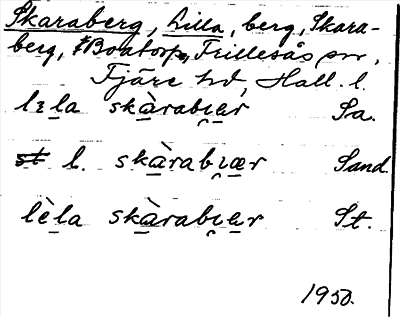 Skaraberg, Lilla, berg, Skara-
berg, Boatorp, Frillesås sn,
Fjäre hd, Hall. l.
lɪla skàrabɪær Sa.
l. skàrabɪær Sand.
lèla skàrabɪær St.
1950.